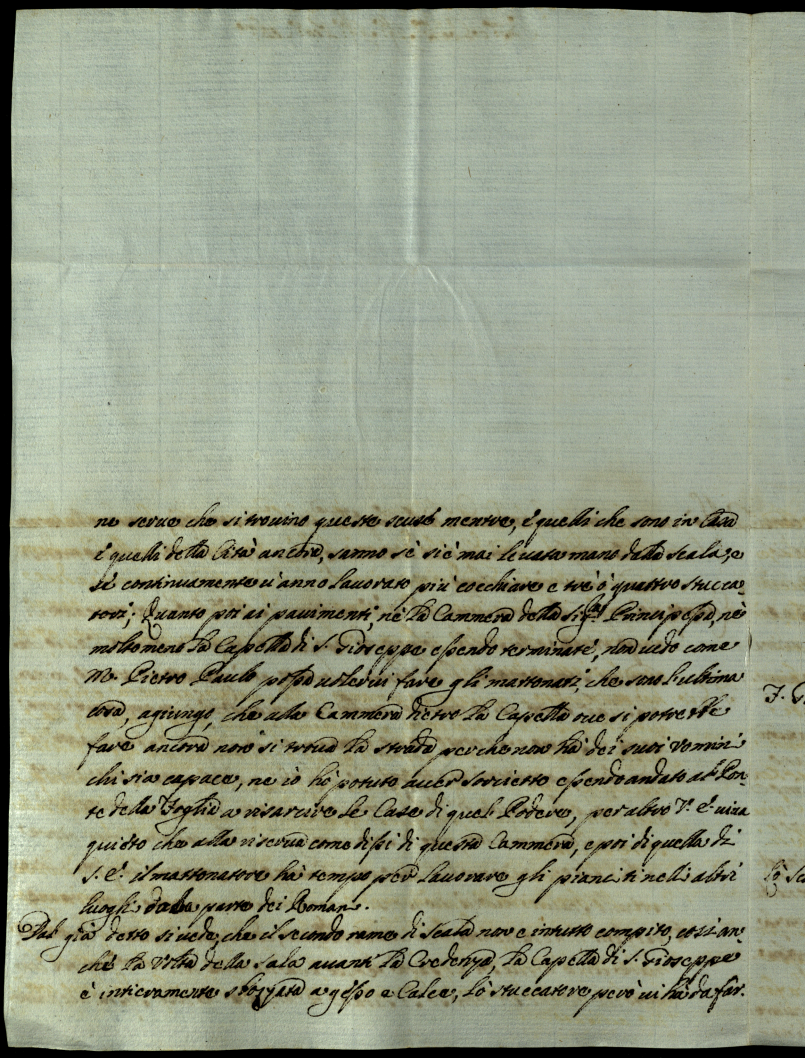 ne serve che si trovino queste scuse mentre, e quelli che sono in Casa
e quelli della Città ancora, sanno se si è mai levata mano dalla scala, e
se continuamente v'anno lavorato più cocchiare e trè ò quattro stucca-
tori; Quanto poi ai pavimenti, nè la Cammera della Sig.ra Principessa, nè
molto meno la Capella di S. Gioseppe essendo terminate, non vedo come
M. Pietro Paulo possa volervi fare gli mattonati, che sono l'ultima
cosa, agiungo, che alla Cammera dietro la Capella ove si potrebbe
fare ancora non si trova la strada perche non ha dei suoi vomini
chi sia capace, ne io hò potuto aver essendo andato al Pon-
te della Foglia a risarcire le Case di quel Podere, per altro V. E. viva
quieto che alla riserva come dissi di questa Cammera, e poi di quella di
S. E. il mattonatore hà tempo per lavorare gli pianciti nelli altri
luoghi dala parte dei Romani.
Dal già detto si vede, che il secondo ramo di scala non e intutto compito, cosi an-
che la volta della sala avanti la Credenza, la Capella di S. Gioseppe
è intieramente sbozzata a gesso e calce, lo stuccatore però vi hà da far.